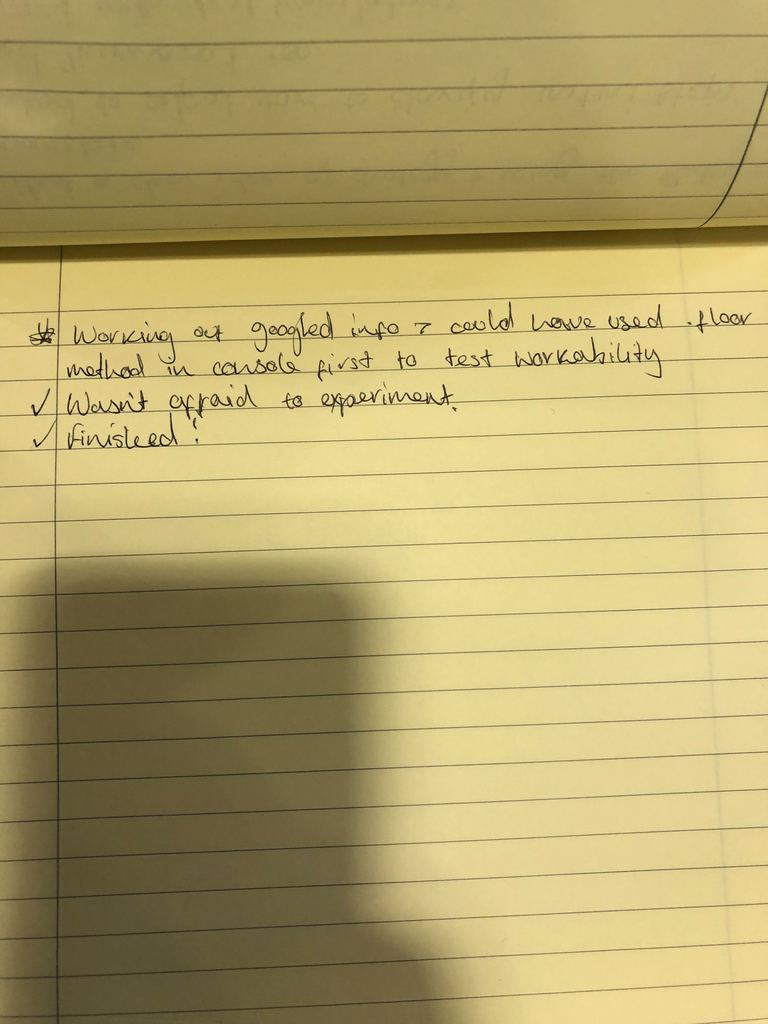 * Working out googled info > could have used .floor
method in console first to test workability
✓ Wasn't afraid to experiment.
✓ Finished!